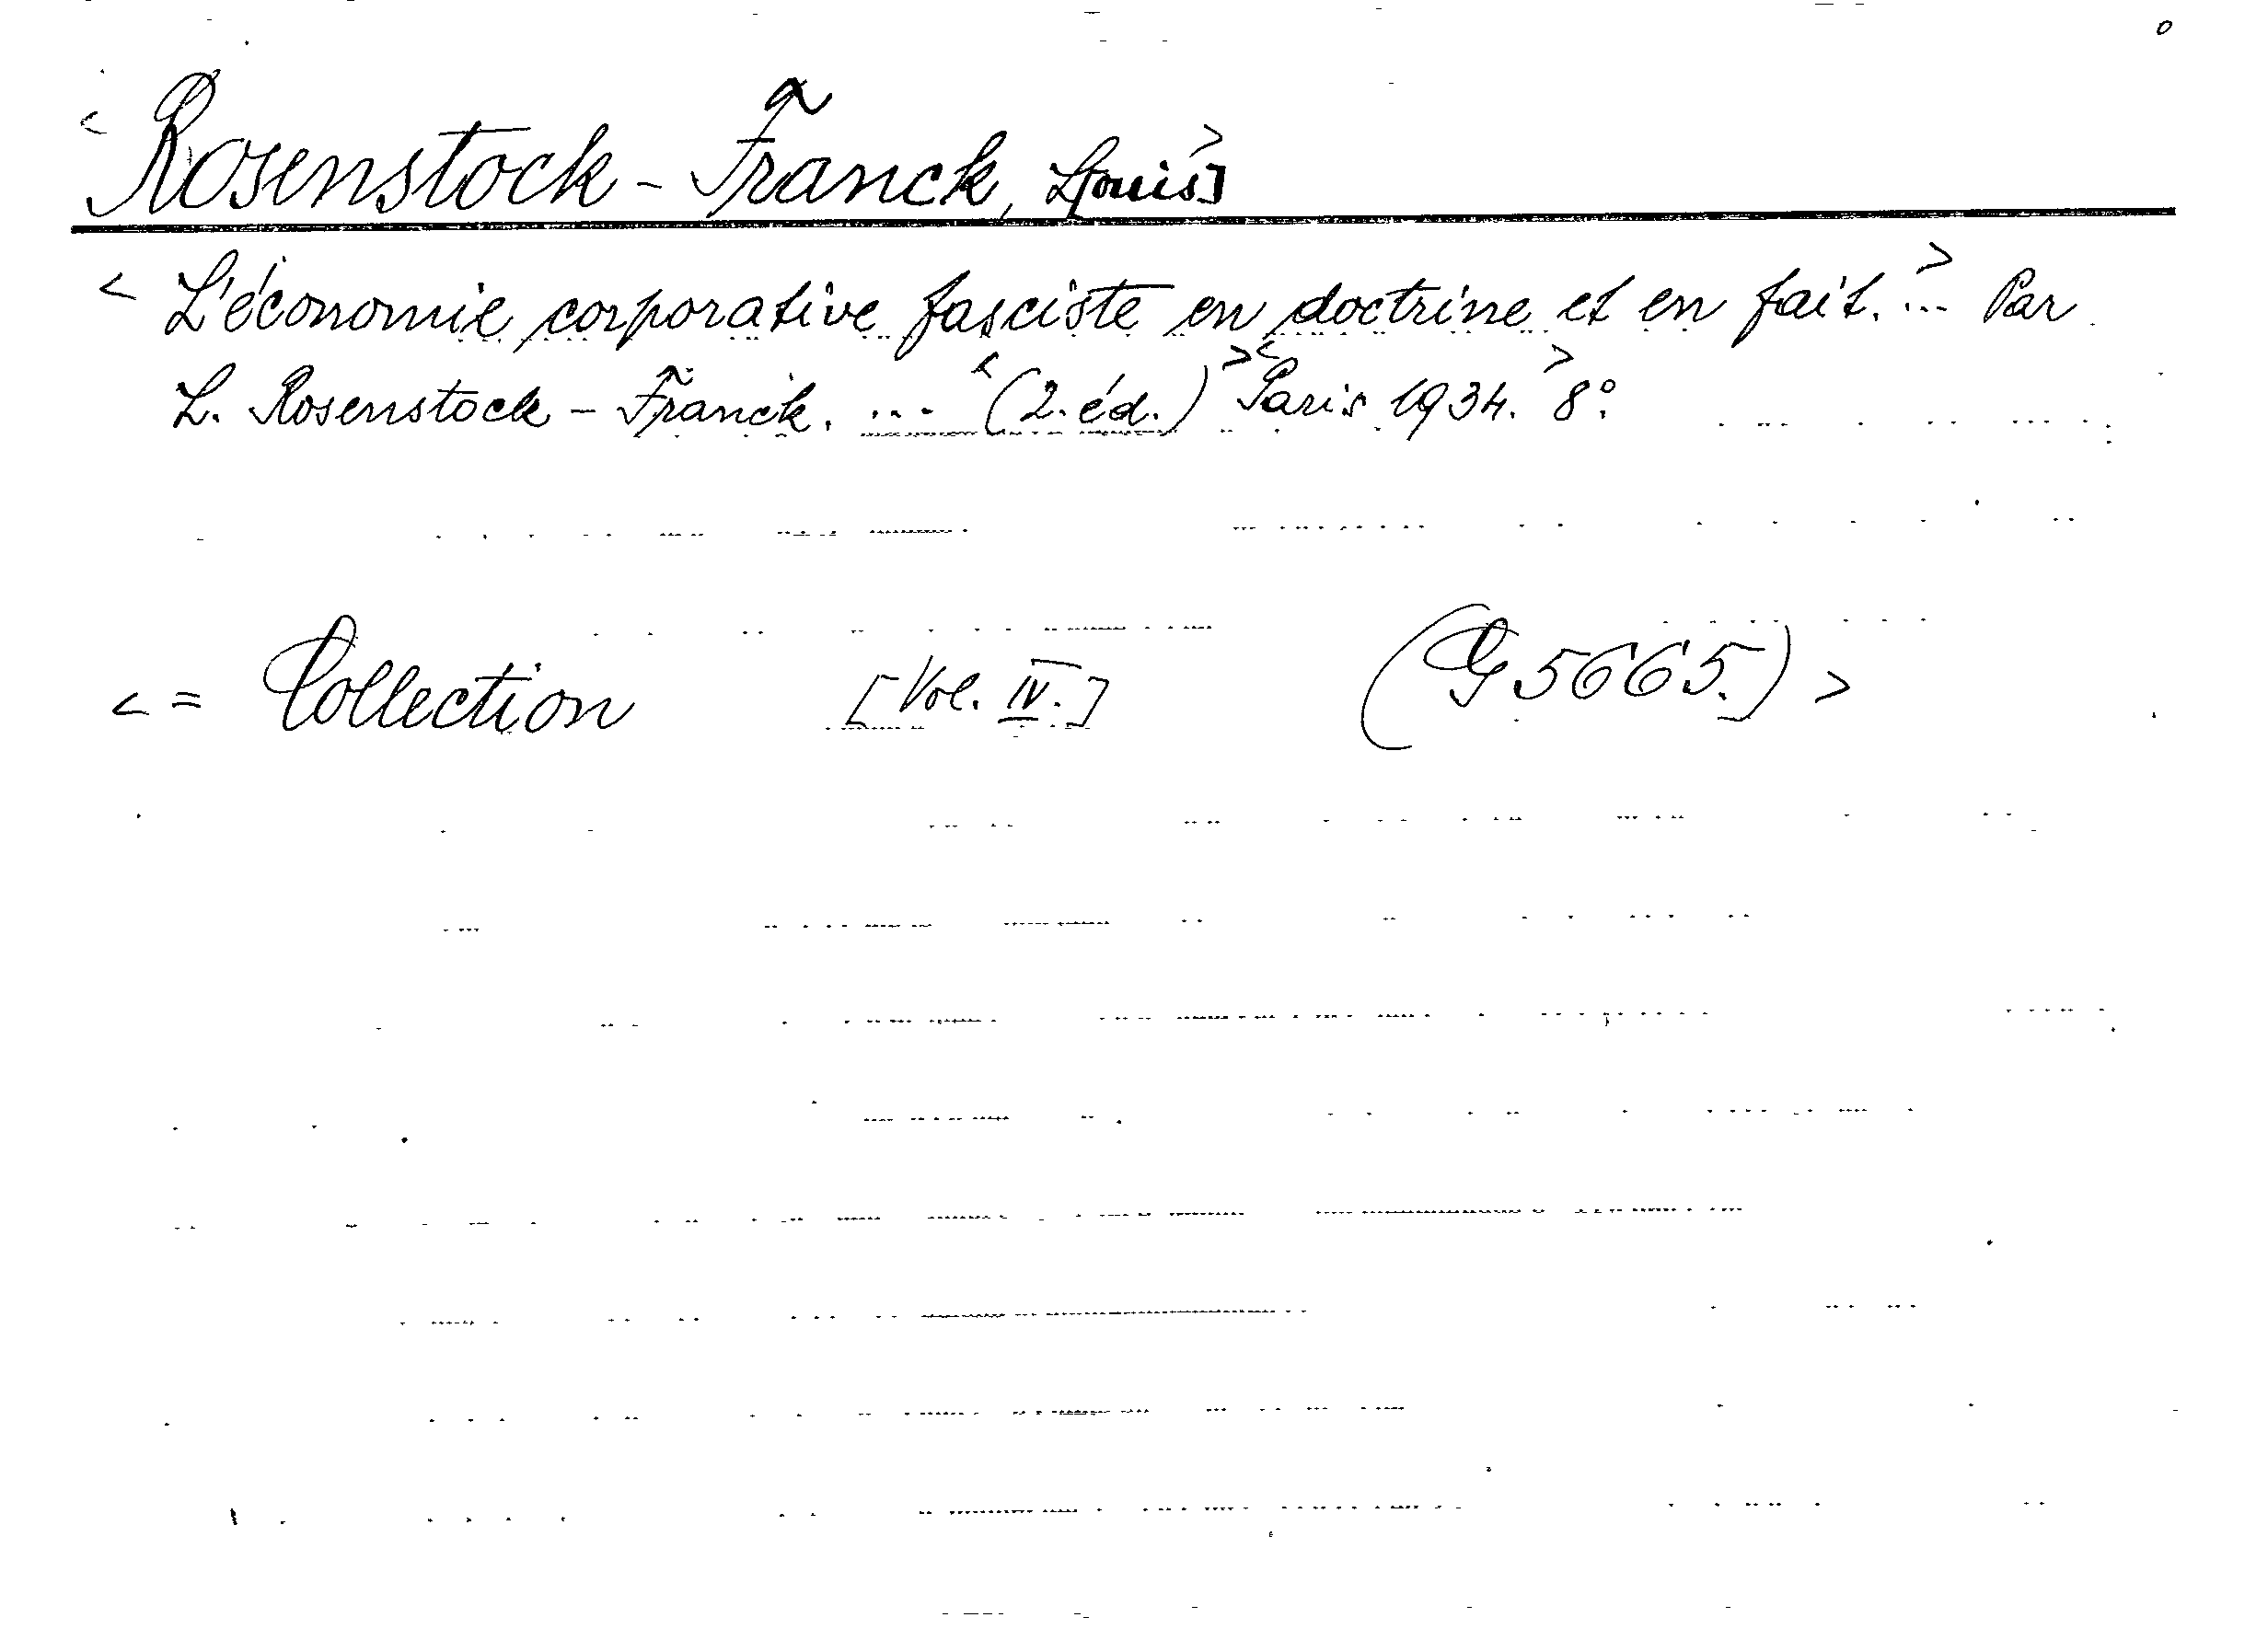 < Rosenstock-Franck, L[ouis] >
< L'économie corporative fasciste en doctrine et en fait. > ... Par
L. Rosenstock-Franck. ... < (2. éd.) > < Paris 1934. > 8°.
< = Collection [Vol. IV.] (G 5665.) >